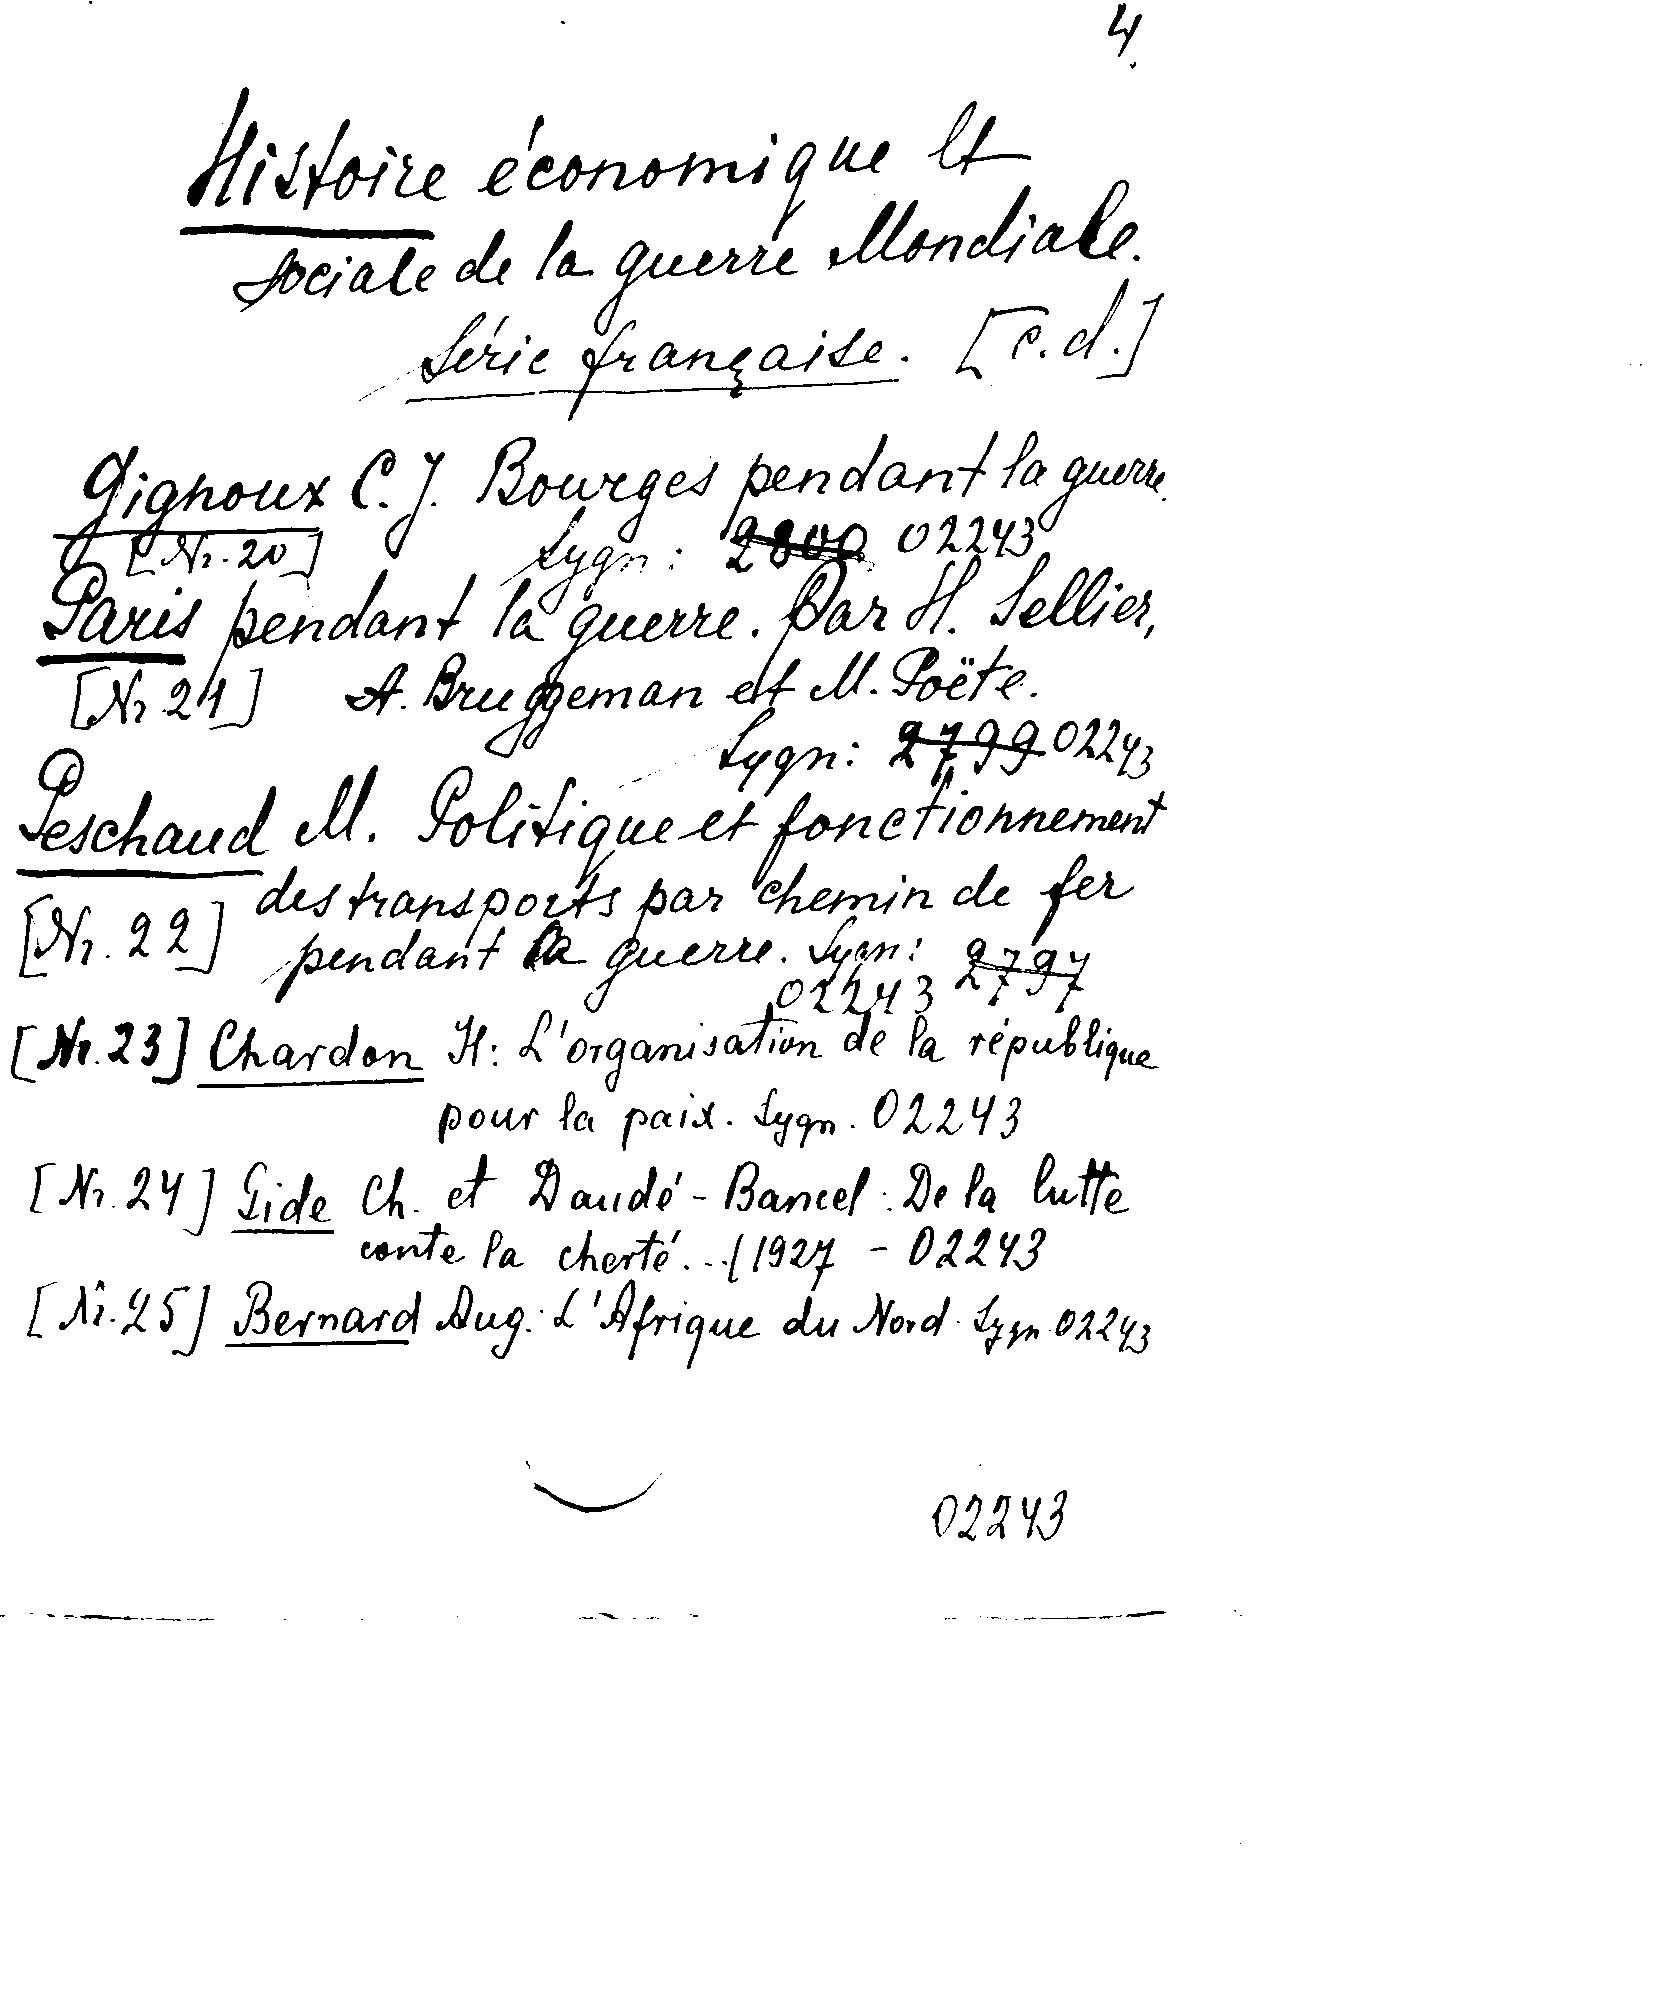 4.
Histoire économique et
sociale de la guerre Mondiale.
Série française. [c.d.]
Gignoux C. J. Bourges pendant la guerre.
[Nr. 20] Sygn: 2800 02243
Paris pendant la guerre. Par H. Sellier,
[Nr 21] A. Bruggeman et M. Poëte.
Sygn: 2799 02243
Peschaud M. Politique et fonctionnement
des transports par chemin de fer
[Nr. 22] pendant la guerre. Sygn: 2797
02243
[Nr. 23] Chardon H: L'organisation de la république
pour la paix. Sygn. 02243
[Nr. 24] Gide Ch. et Daudé-Bancel: De la lutte
conte la cherté...(1927 - 02243
[Nr. 25] Bernard Aug: L'Afrique du Nord. Sygn 02243
02243